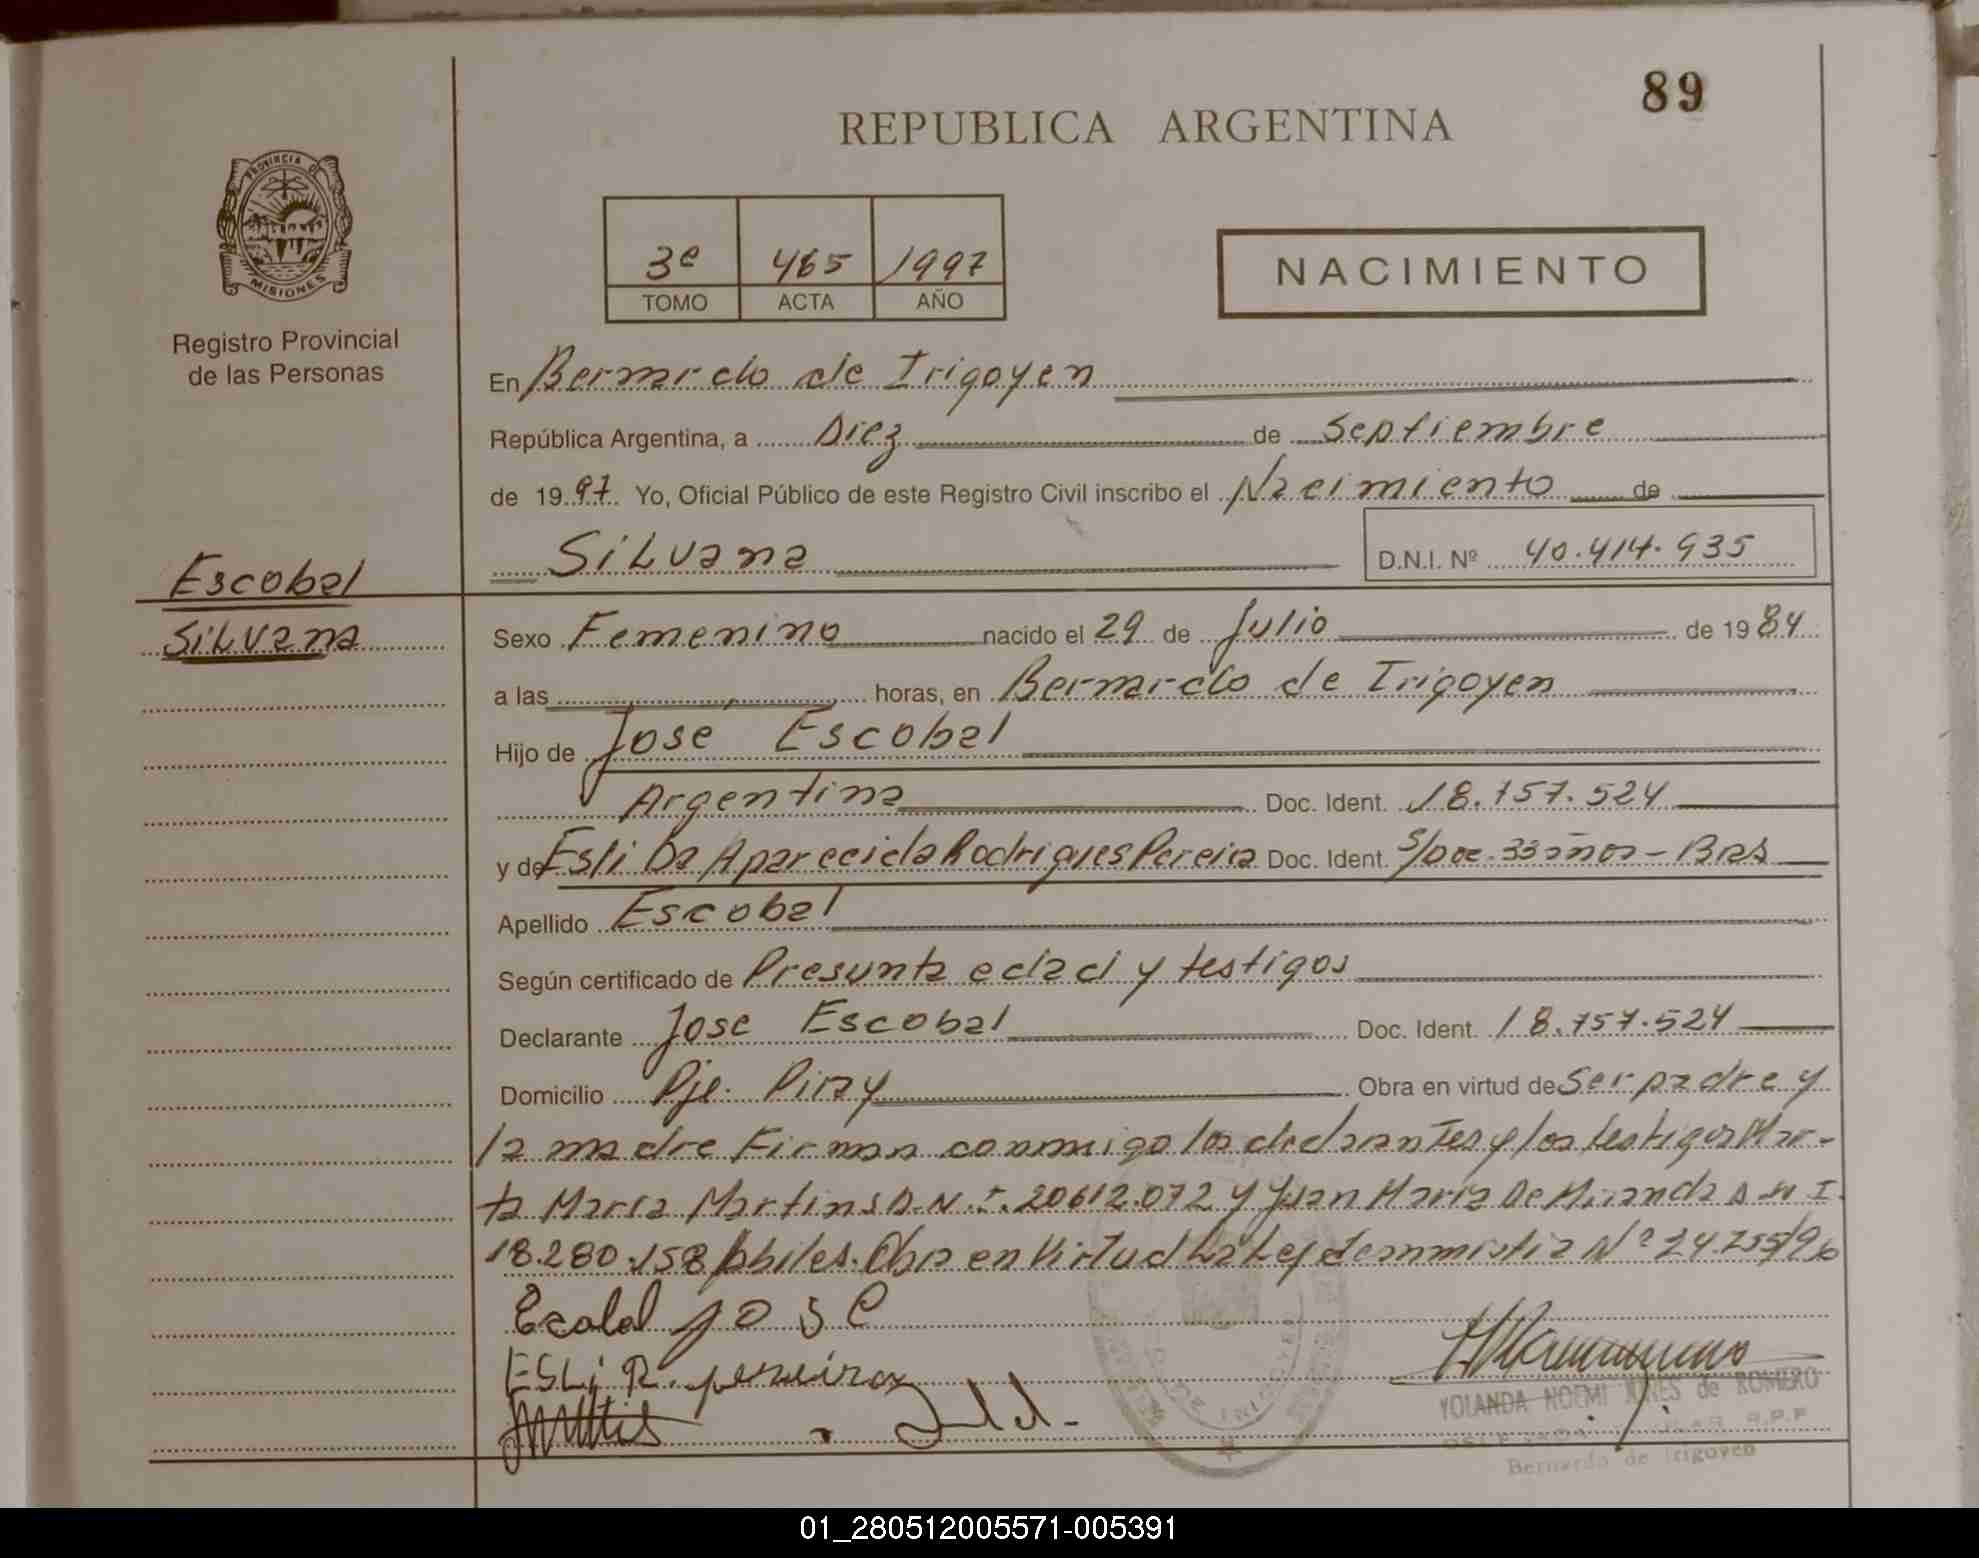 89
REPUBLICA ARGENTINA
PROVINCIA DE
MISIONES
Registro Provincial
de las Personas
3º 465 1997
TOMO ACTA AÑO
NACIMIENTO
En Bernardo de Irigoyen
República Argentina, a Diez de Septiembre
de 1997 Yo, Oficial Público de este Registro Civil inscribo el Nacimiento de
Silvana D.N.I. Nº 40.414.935
Escobal
Silvana
Sexo Femenino nacido el 29 de Julio de 1984
a las horas, en Bernardo de Irigoyen
Hijo de José Escobal
Argentina Doc. Ident. 18.757.524
y de Esli Da Aparecida Rodrigues Pereira Doc. Ident. S/Doc. 33 años - Bras
Apellido Escobal
Según certificado de Presunta edad y testigos
Declarante Jose Escobal Doc. Ident. 18.757.524
Domicilio Pje. Piray Obra en virtud de Ser padre y
la madre Firman conmigo los declarantes y los testigos Mar-
ta Maria Martins D.N.I. 20612.072 y Juan Maria De Miranda D N I
18.280.158 habiles. Obra en Virtud La Ley de amnistia Nº 24.755/96
Escobal Jose
ESLi R. pereira
YOLANDA NOEMI de ROMERO
R.P.P
Bernardo de Irigoyen
01_280512005571-005391